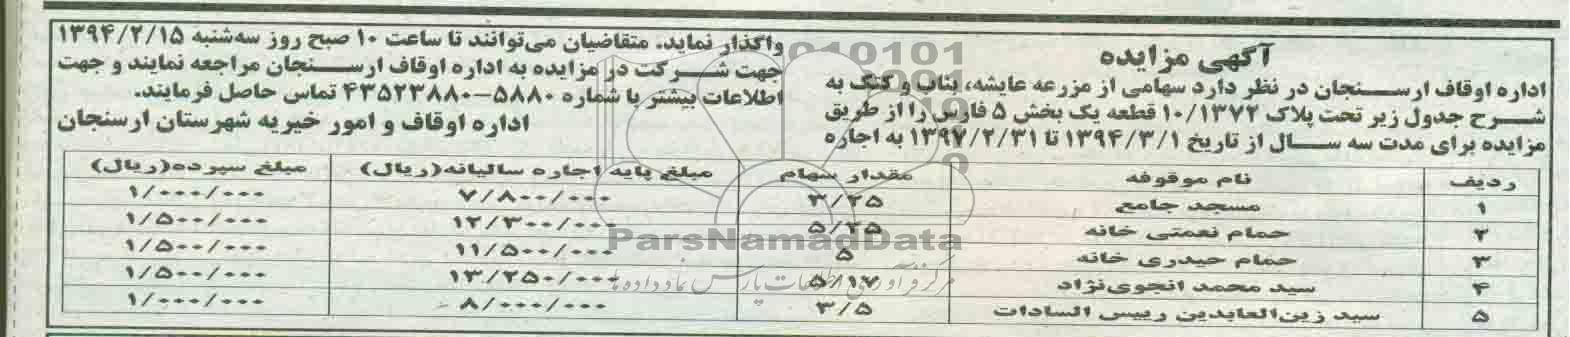 آگهی مزایده
اداره اوقاف ارسنجان در نظر دارد سهامی از مزرعه عایشه، بناب و کتک به
شرح جدول زیر تحت پلاک ۱۰/۱۳۷۲ قطعه یک بخش ۵ فارس را از طریق
مزایده برای مدت سه سال از تاریخ ۱۳۹۴/۳/۱ تا ۱۳۹۷/۲/۳۱ به اجاره
واگذار نماید. متقاضیان می‌توانند تا ساعت ۱۰ صبح روز سه‌شنبه ۱۳۹۴/۲/۱۵
جهت شرکت در مزایده به اداره اوقاف ارسنجان مراجعه نمایند و جهت
اطلاعات بیشتر با شماره ۵۸۸۰-۴۳۵۲۳۸۸۰ تماس حاصل فرمایند.
اداره اوقاف و امور خیریه شهرستان ارسنجان
ردیف نام موقوفه مقدار سهام مبلغ پایه اجاره سالیانه(ریال) مبلغ سپرده(ریال)
۱ مسجد جامع ۳/۲۵ ۷/۸۰۰/۰۰۰ ۱/۰۰۰/۰۰۰
۲ حمام نعمتی خانه ۵/۲۵ ۱۲/۳۰۰/۰۰۰ ۱/۵۰۰/۰۰۰
۳ حمام حیدری خانه ۵ ۱۱/۵۰۰/۰۰۰ ۱/۵۰۰/۰۰۰
۴ سید محمد انجوی‌نژاد ۵/۱۷ ۱۳/۲۵۰/۰۰۰ ۱/۵۰۰/۰۰۰
۵ سید زین‌العابدین رییس السادات ۳/۵ ۸/۰۰۰/۰۰۰ ۱/۰۰۰/۰۰۰
ParsNamadData